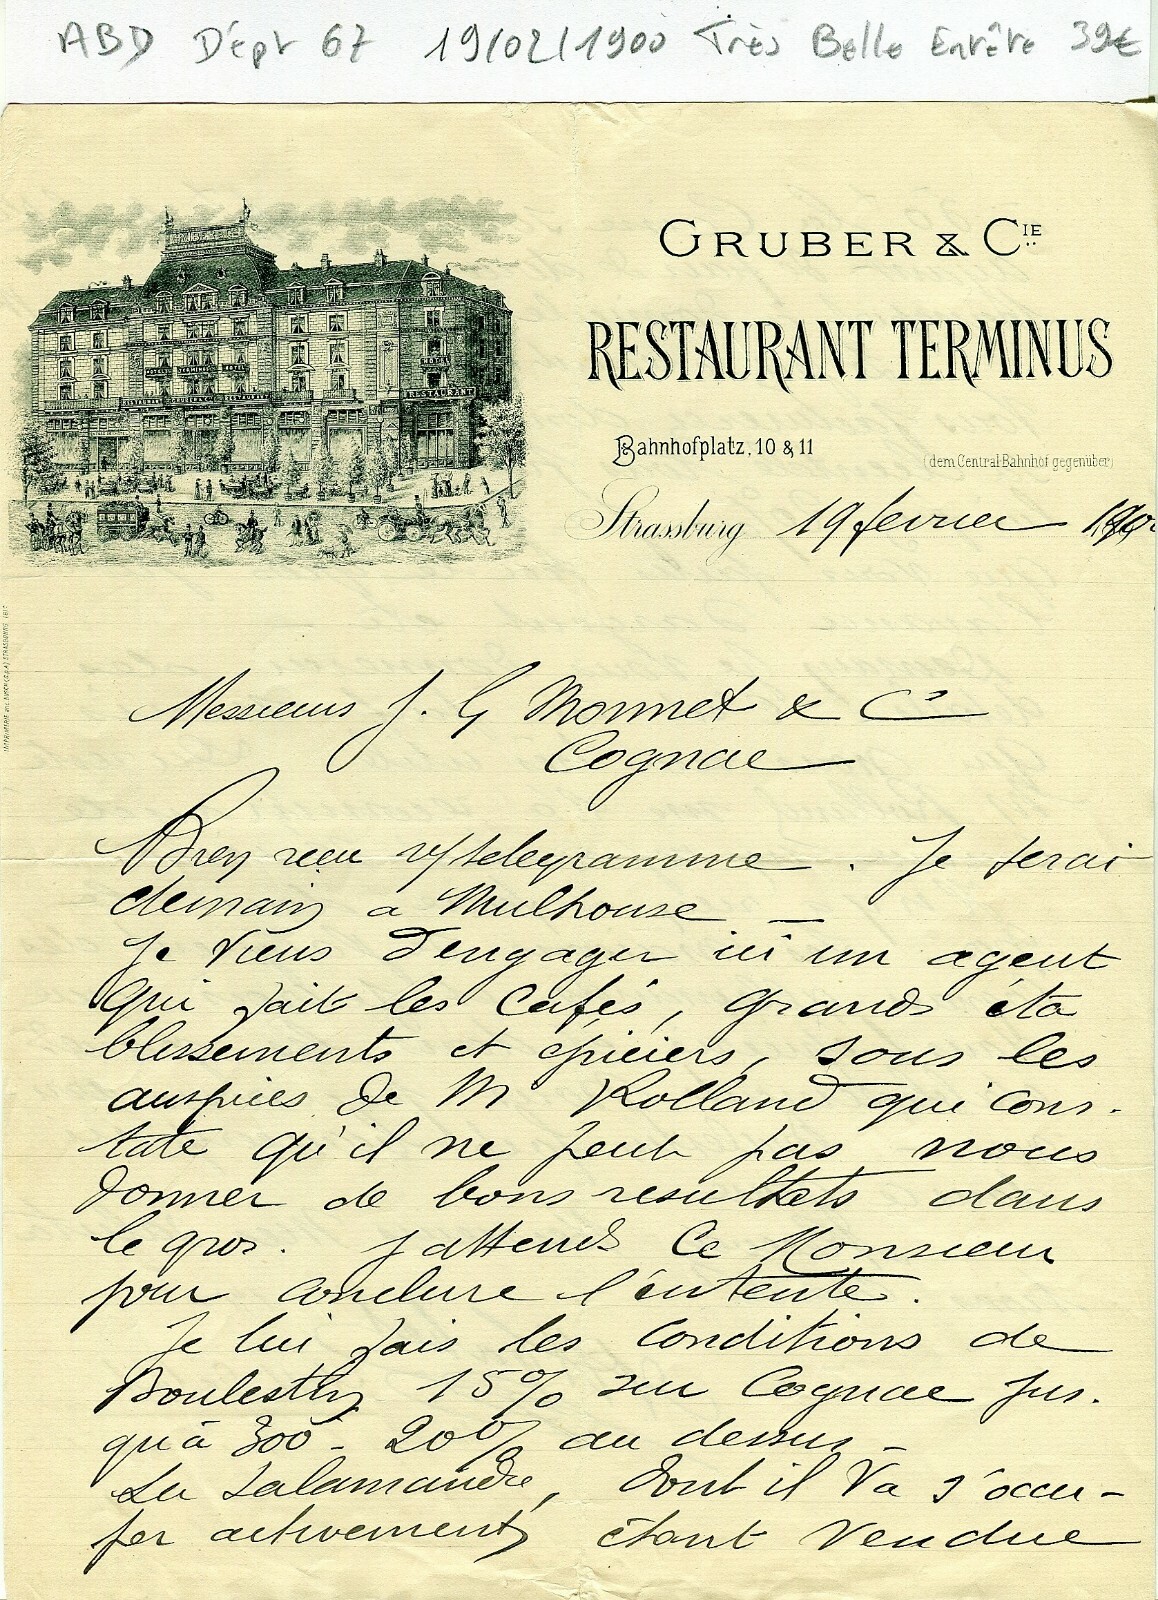 ABD Dépt 67 19/02/1900 Très Belle Entête 39€
GRUBER & CIE
RESTAURANT TERMINUS
Bahnhofplatz, 10 & 11
(dem Central-Bahnhof gegenüber)
Strassburg 19 fevrier 190
HOTEL TERMINUS HOTEL
HOTEL
RESTAURANT
Messieurs J. G Monnet & Co
Cognac
Bien recu v/telegramme. Je serai
demain a Mulhouse —
Je viens d'engager ici un agent
qui fait les cafés, grands éta
blissements et épiciers, sous les
auspices de M Rolland qui cons-
tate qu'il ne peut pas nous
donner de bons resultats dans
le gros. J attends ce Monsieur
pour conclure l'entente.
Je lui fais les conditions de
Boulestin 15% sur Cognac jus-
qu'à 300 - 20% au dessus -
La Salamandre, dont il va s'occu-
per activement, étant vendue